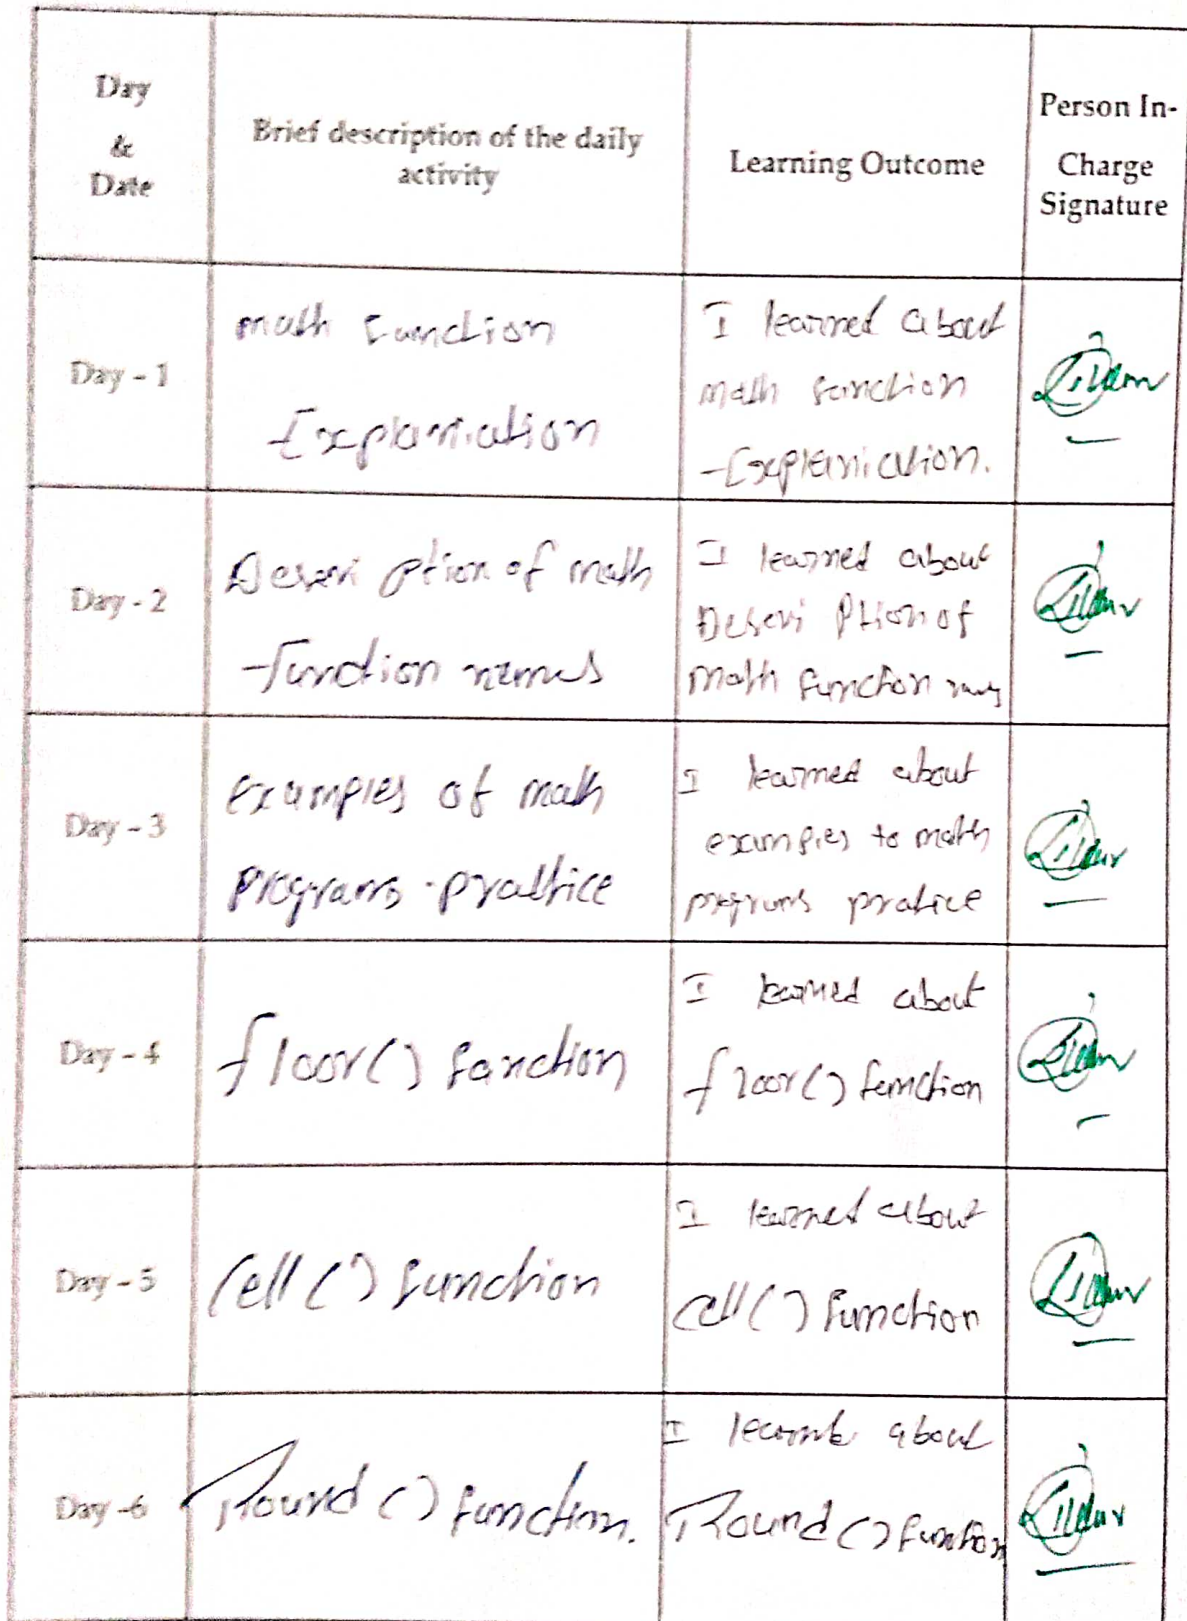 Day
&
Date
Brief description of the daily
activity
Learning Outcome
Person In-
Charge
Signature
Day - 1
math function
Explanication
I learned about
math function
Explanication.
Day - 2
Descri ption of math
function names
I learned about
Descri Ption of
math function
Day - 3
Examples of math
programs practice
I learned about
examples to math
programs pratice
Day - 4
floor() function
I learned about
floor() function
Day - 5
Cell() function
I learned about
Cell() function
Day -6
Round () function.
I about
Round () function